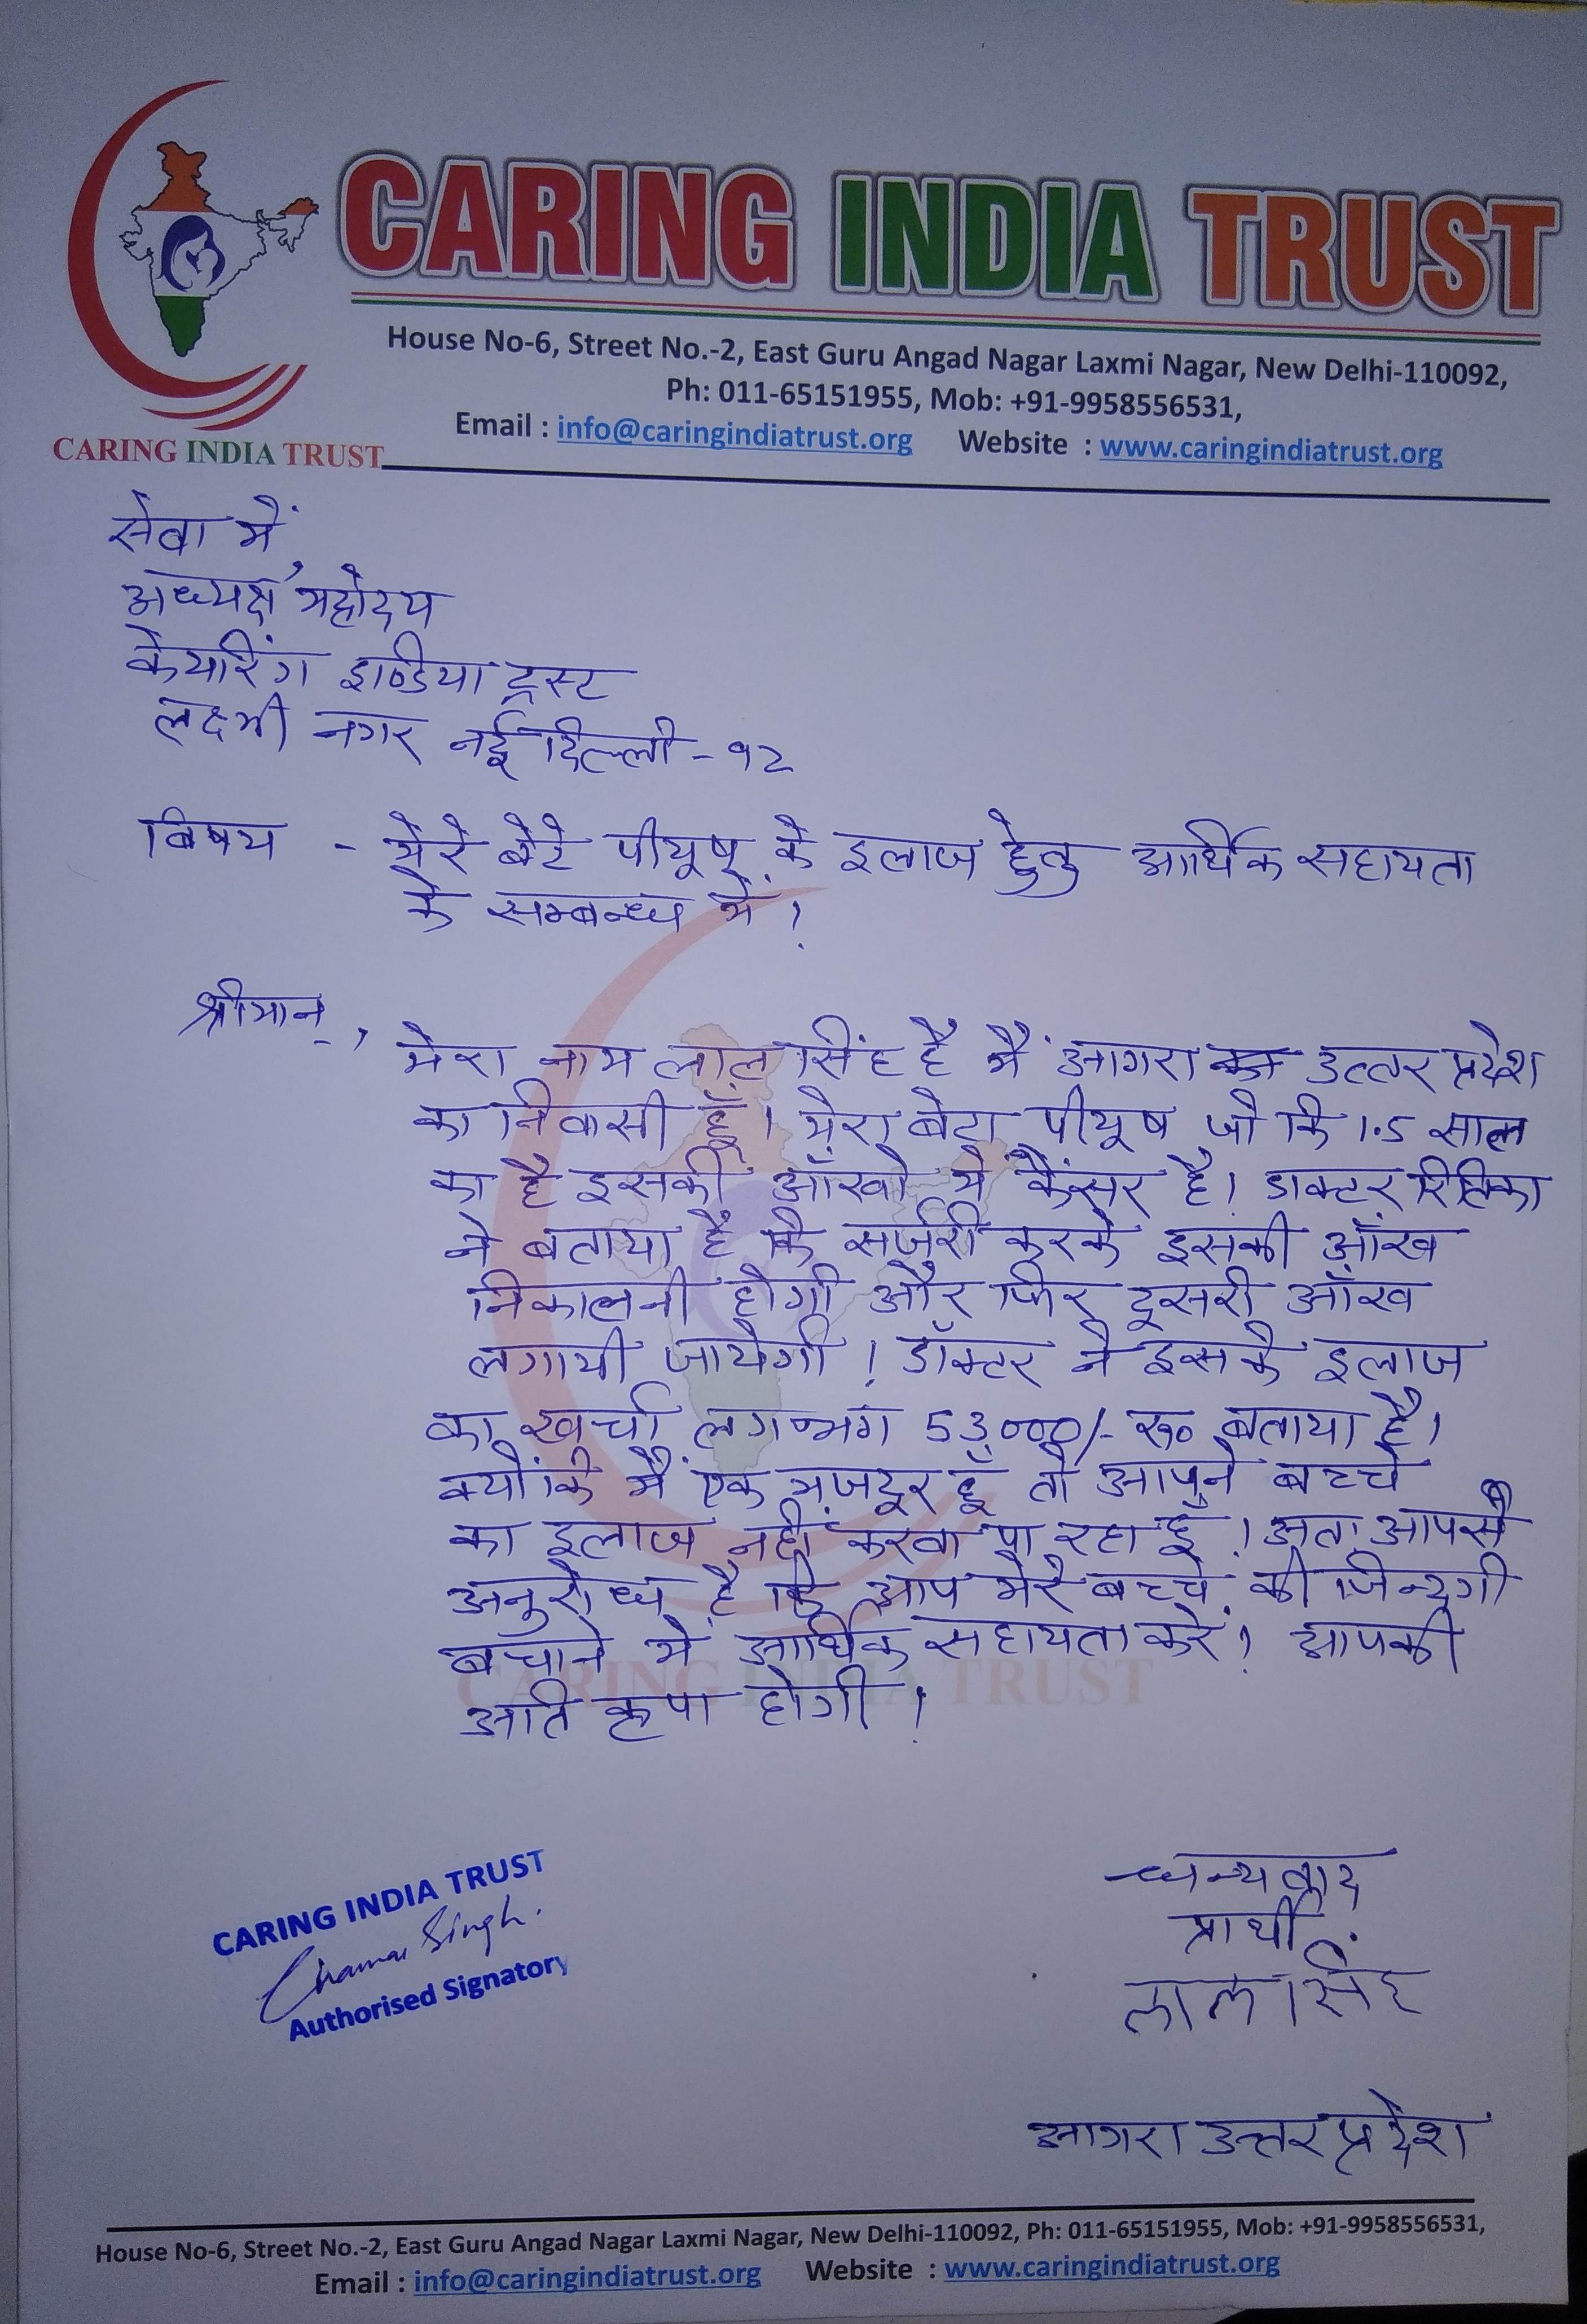 CARING INDIA TRUST
House No-6, Street No.-2, East Guru Angad Nagar Laxmi Nagar, New Delhi-110092,
Ph: 011-65151955, Mob: +91-9958556531,
Email : info@caringindiatrust.org Website : www.caringindiatrust.org
CARING INDIA TRUST
सेवा में,
अध्यक्ष महोदय
केयरिंग इण्डिया ट्रस्ट
लक्ष्मी नगर नई दिल्ली - ९२
विषय - मेरे बेटे पीयूष के इलाज हेतु आर्थिक सहायता
के सम्बन्ध मे।
श्रीमान्,
मेरा नाम लाल सिंह है मैं आगरा उत्तर प्रदेश
का निवासी हूँ। मेरा बेटा पीयूष जो कि 1.5 साल
का है इसकी आँखो मे कैंसर है। डाक्टर रितिका
ने बताया है कि सर्जरी करके इसकी आँख
निकालनी होगी और फिर दूसरी आँख
लगायी जायेगी। डॉक्टर ने इसके इलाज
का खर्चा लगभग 53,000/- रु० बताया है।
क्योंकि मैं एक मजदूर हूँ तो अपने बच्चे
का इलाज नहीं करवा पा रहा हूँ। अतः आपसे
अनुरोध है कि आप मेरे बच्चे की जिन्दगी
बचाने मे आर्थिक सहायता करें। आपकी
अति कृपा होगी।
CARING INDIA TRUST
धन्यवाद
प्रार्थी
लाल सिंह
CARING INDIA TRUST
Singh.
Authorised Signatory
आगरा उत्तर प्रदेश
House No-6, Street No.-2, East Guru Angad Nagar Laxmi Nagar, New Delhi-110092, Ph: 011-65151955, Mob: +91-9958556531,
Email : info@caringindiatrust.org Website : www.caringindiatrust.org